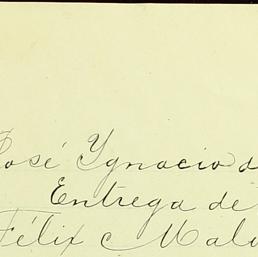 José Ygnacio d
Entrega de
Félix Mal